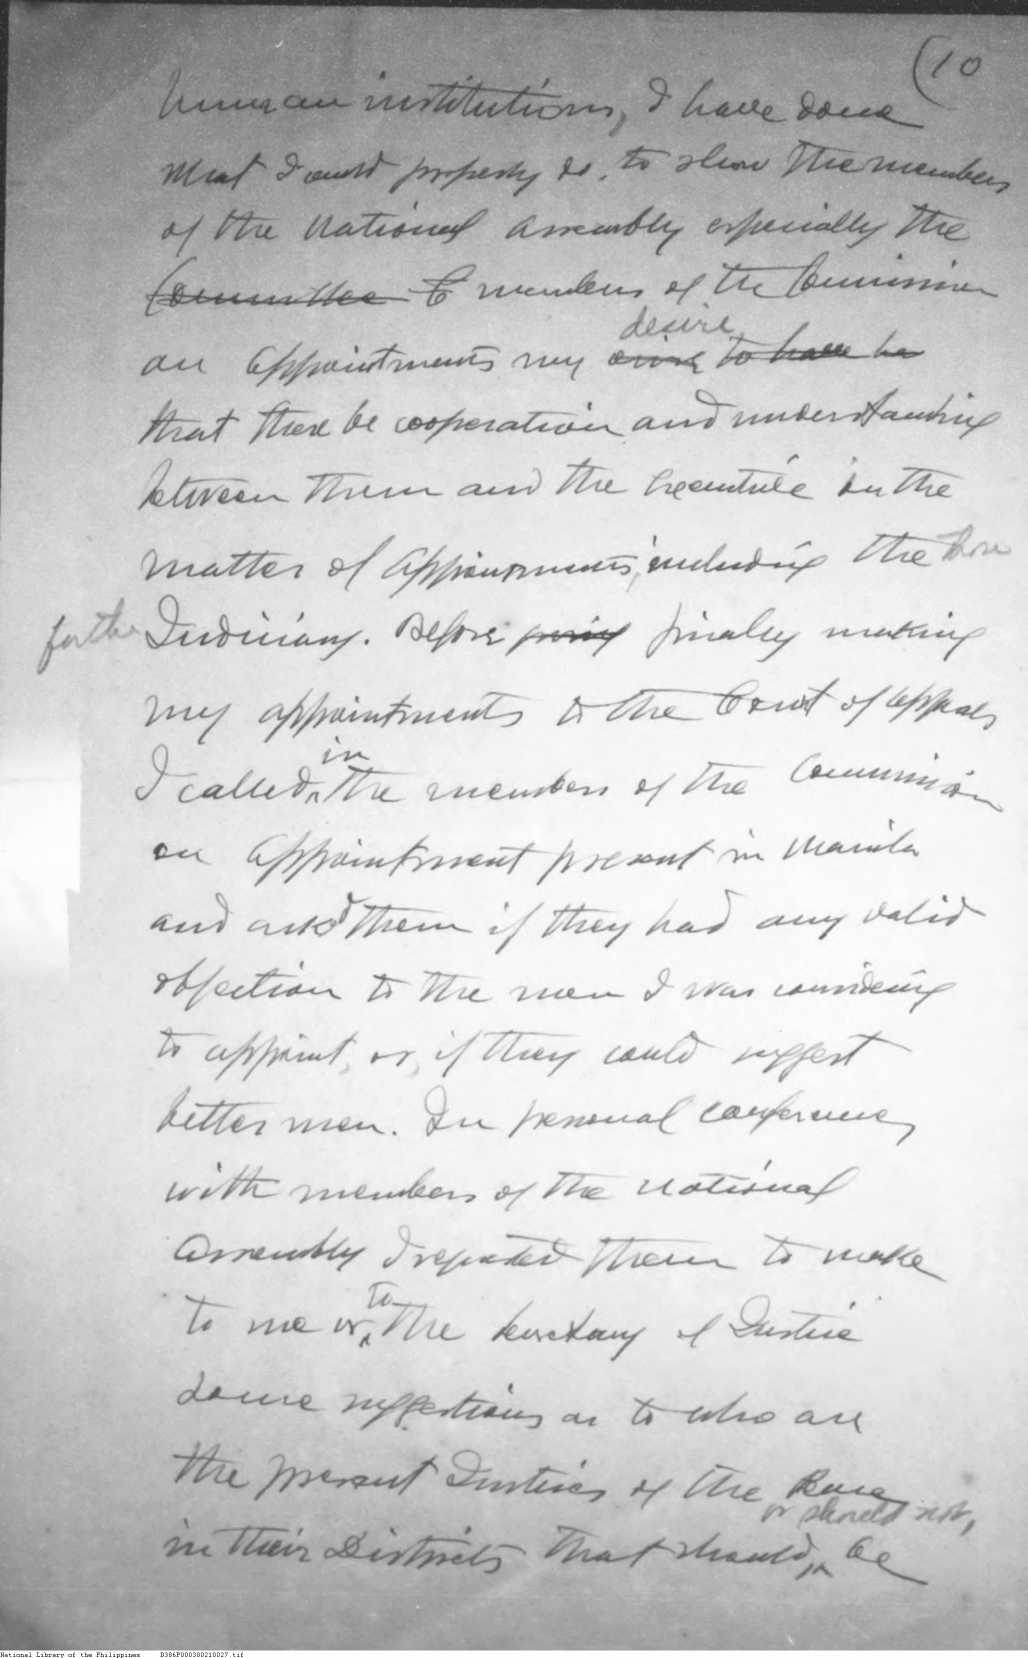 (10
human institutions, I have done
what I could properly do, to show the members
of the National Assembly especially the
Committee C members of the Commission
on Appointments my desire to have
that there be cooperation and understanding
between them and the Executive in the
matter of Appointments, including the those
for the Judiciary. Before finally making
my appointments to the Court of Appeals
I called in the members of the Commission
on Appointment present in Manila
and asked them if they had any valid
objection to the men I was considering
to appoint, or, if they could suggest
better men. In personal conferences
with members of the National
Assembly I requested them to make
to me or to the Secretary of Justice
some suggestions as to who are
the present Justices of the Peace
in their Districts that should, or should not, be
National Library of the Philippines B386P000380210027.tif